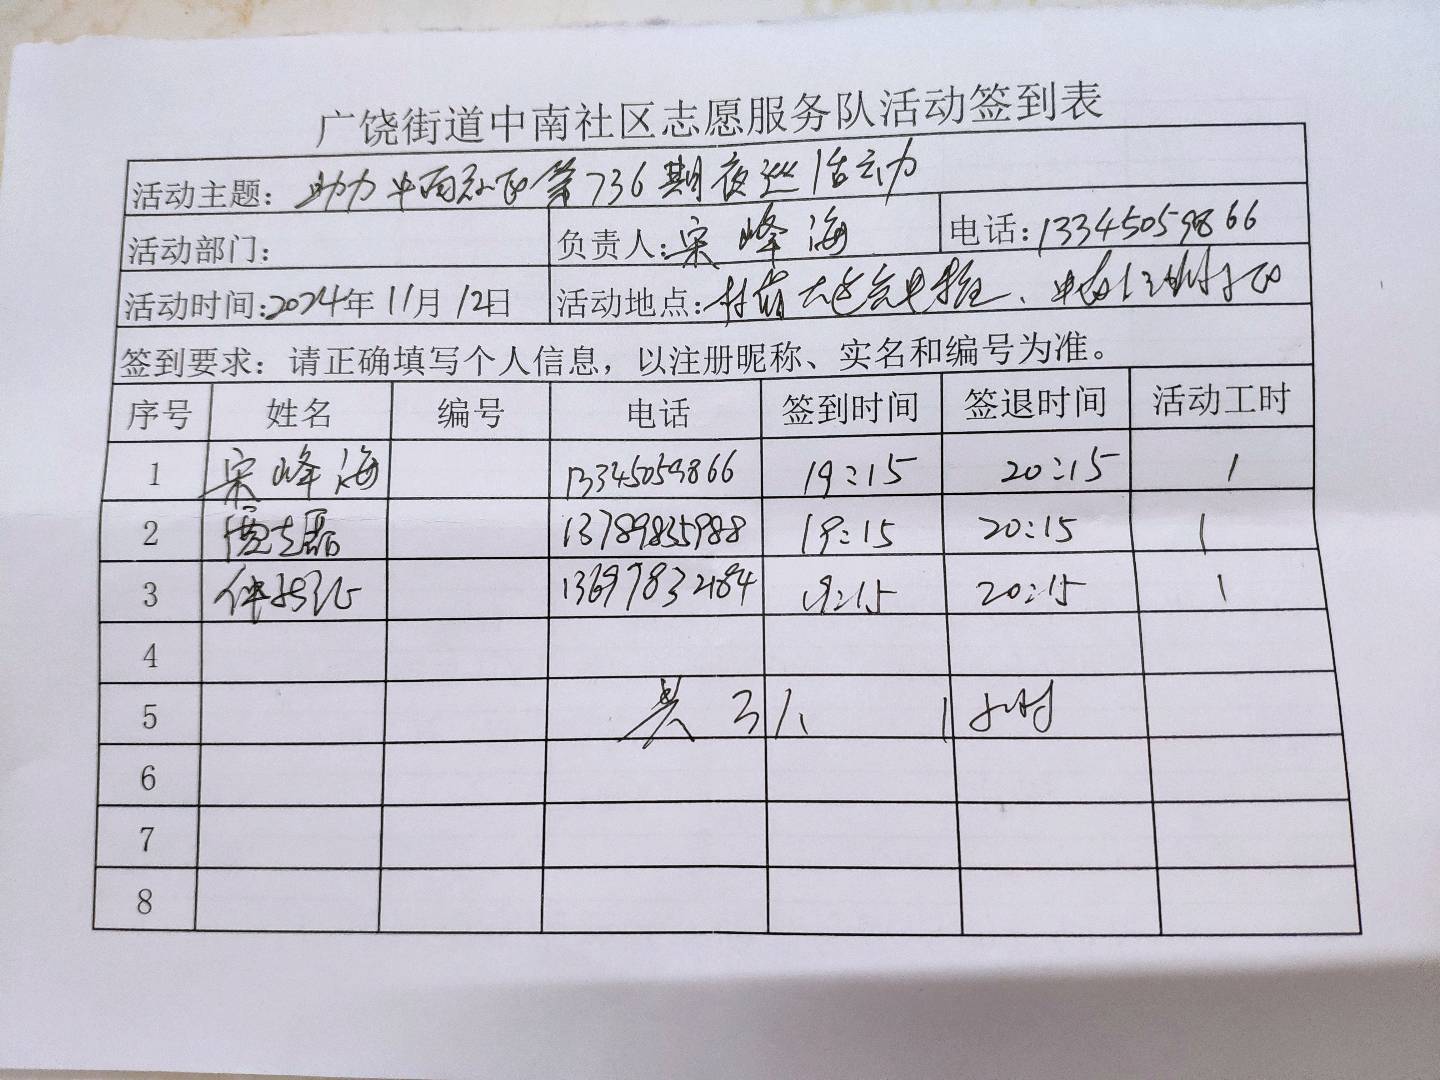 广饶街道中南社区志愿服务队活动签到表
活动主题：助力中南社区第736期夜巡活动
活动部门： 负责人：宋峰海 电话：13345059866
活动时间：2024年11月12日 活动地点：
签到要求：请正确填写个人信息，以注册昵称、实名和编号为准。
序号 姓名 编号 电话 签到时间 签退时间 活动工时
1 宋峰海 13345059866 19:15 20:15 1
2 贾志磊 13789835988 19:15 20:15 1
3 13697832184 19:15 20:15 1
4
5 共3人 1小时
6
7
8